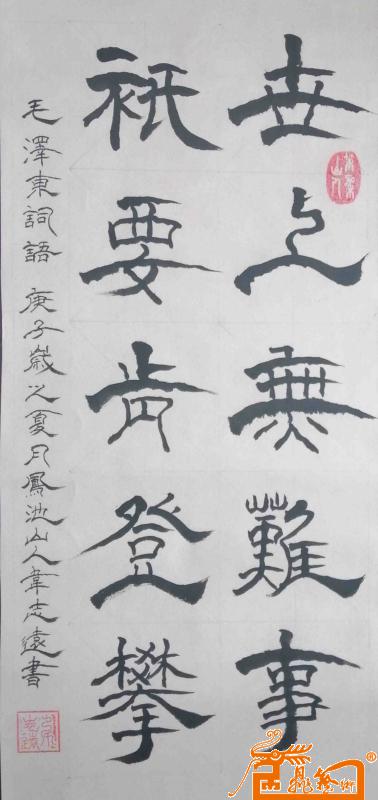 世上無難事
祇要肯登攀
毛澤東詞語 庚子歲之夏月鳳池山人韋志遠書